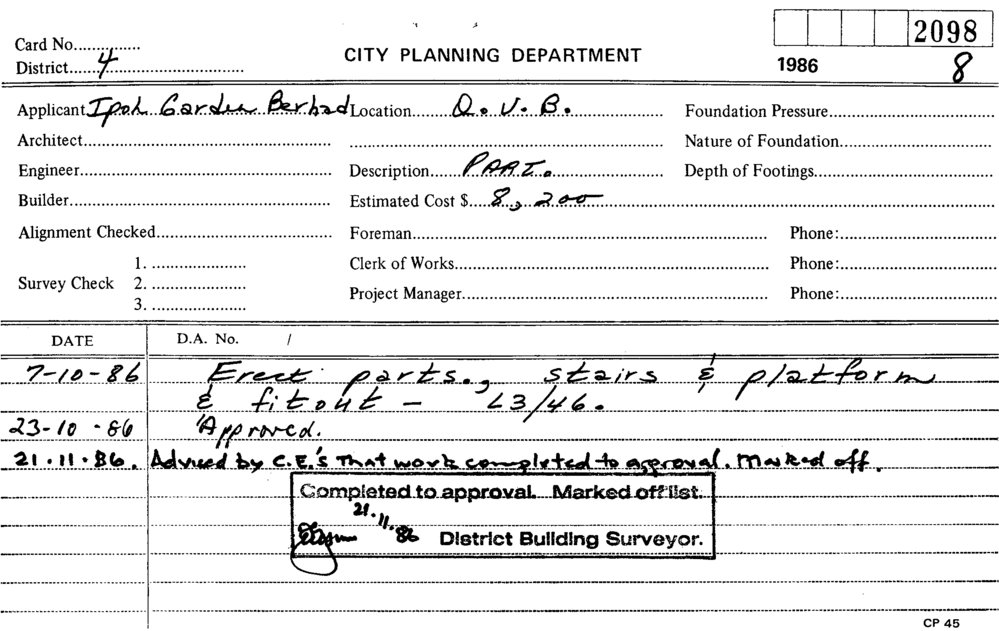 2098
Card No.
District 4
CITY PLANNING DEPARTMENT
1986 8
Applicant Ipoh Garden Berhad Location Q.V.B. Foundation Pressure
Architect Nature of Foundation
Engineer Description PART. Depth of Footings
Builder Estimated Cost $ 8,200
Alignment Checked Foreman Phone:
Survey Check 1. 2. 3.
Clerk of Works Phone:
Project Manager Phone:
DATE D.A. No. /
7-10-86 Erect parts., stairs & platform
& fitout - L3/46.
23-10-86 Approved.
21.11.86. Advised by C.E.'s That work completed to approval. Marked off.
Completed to approval. Marked off list.
21.11.86
District Building Surveyor.
CP 45